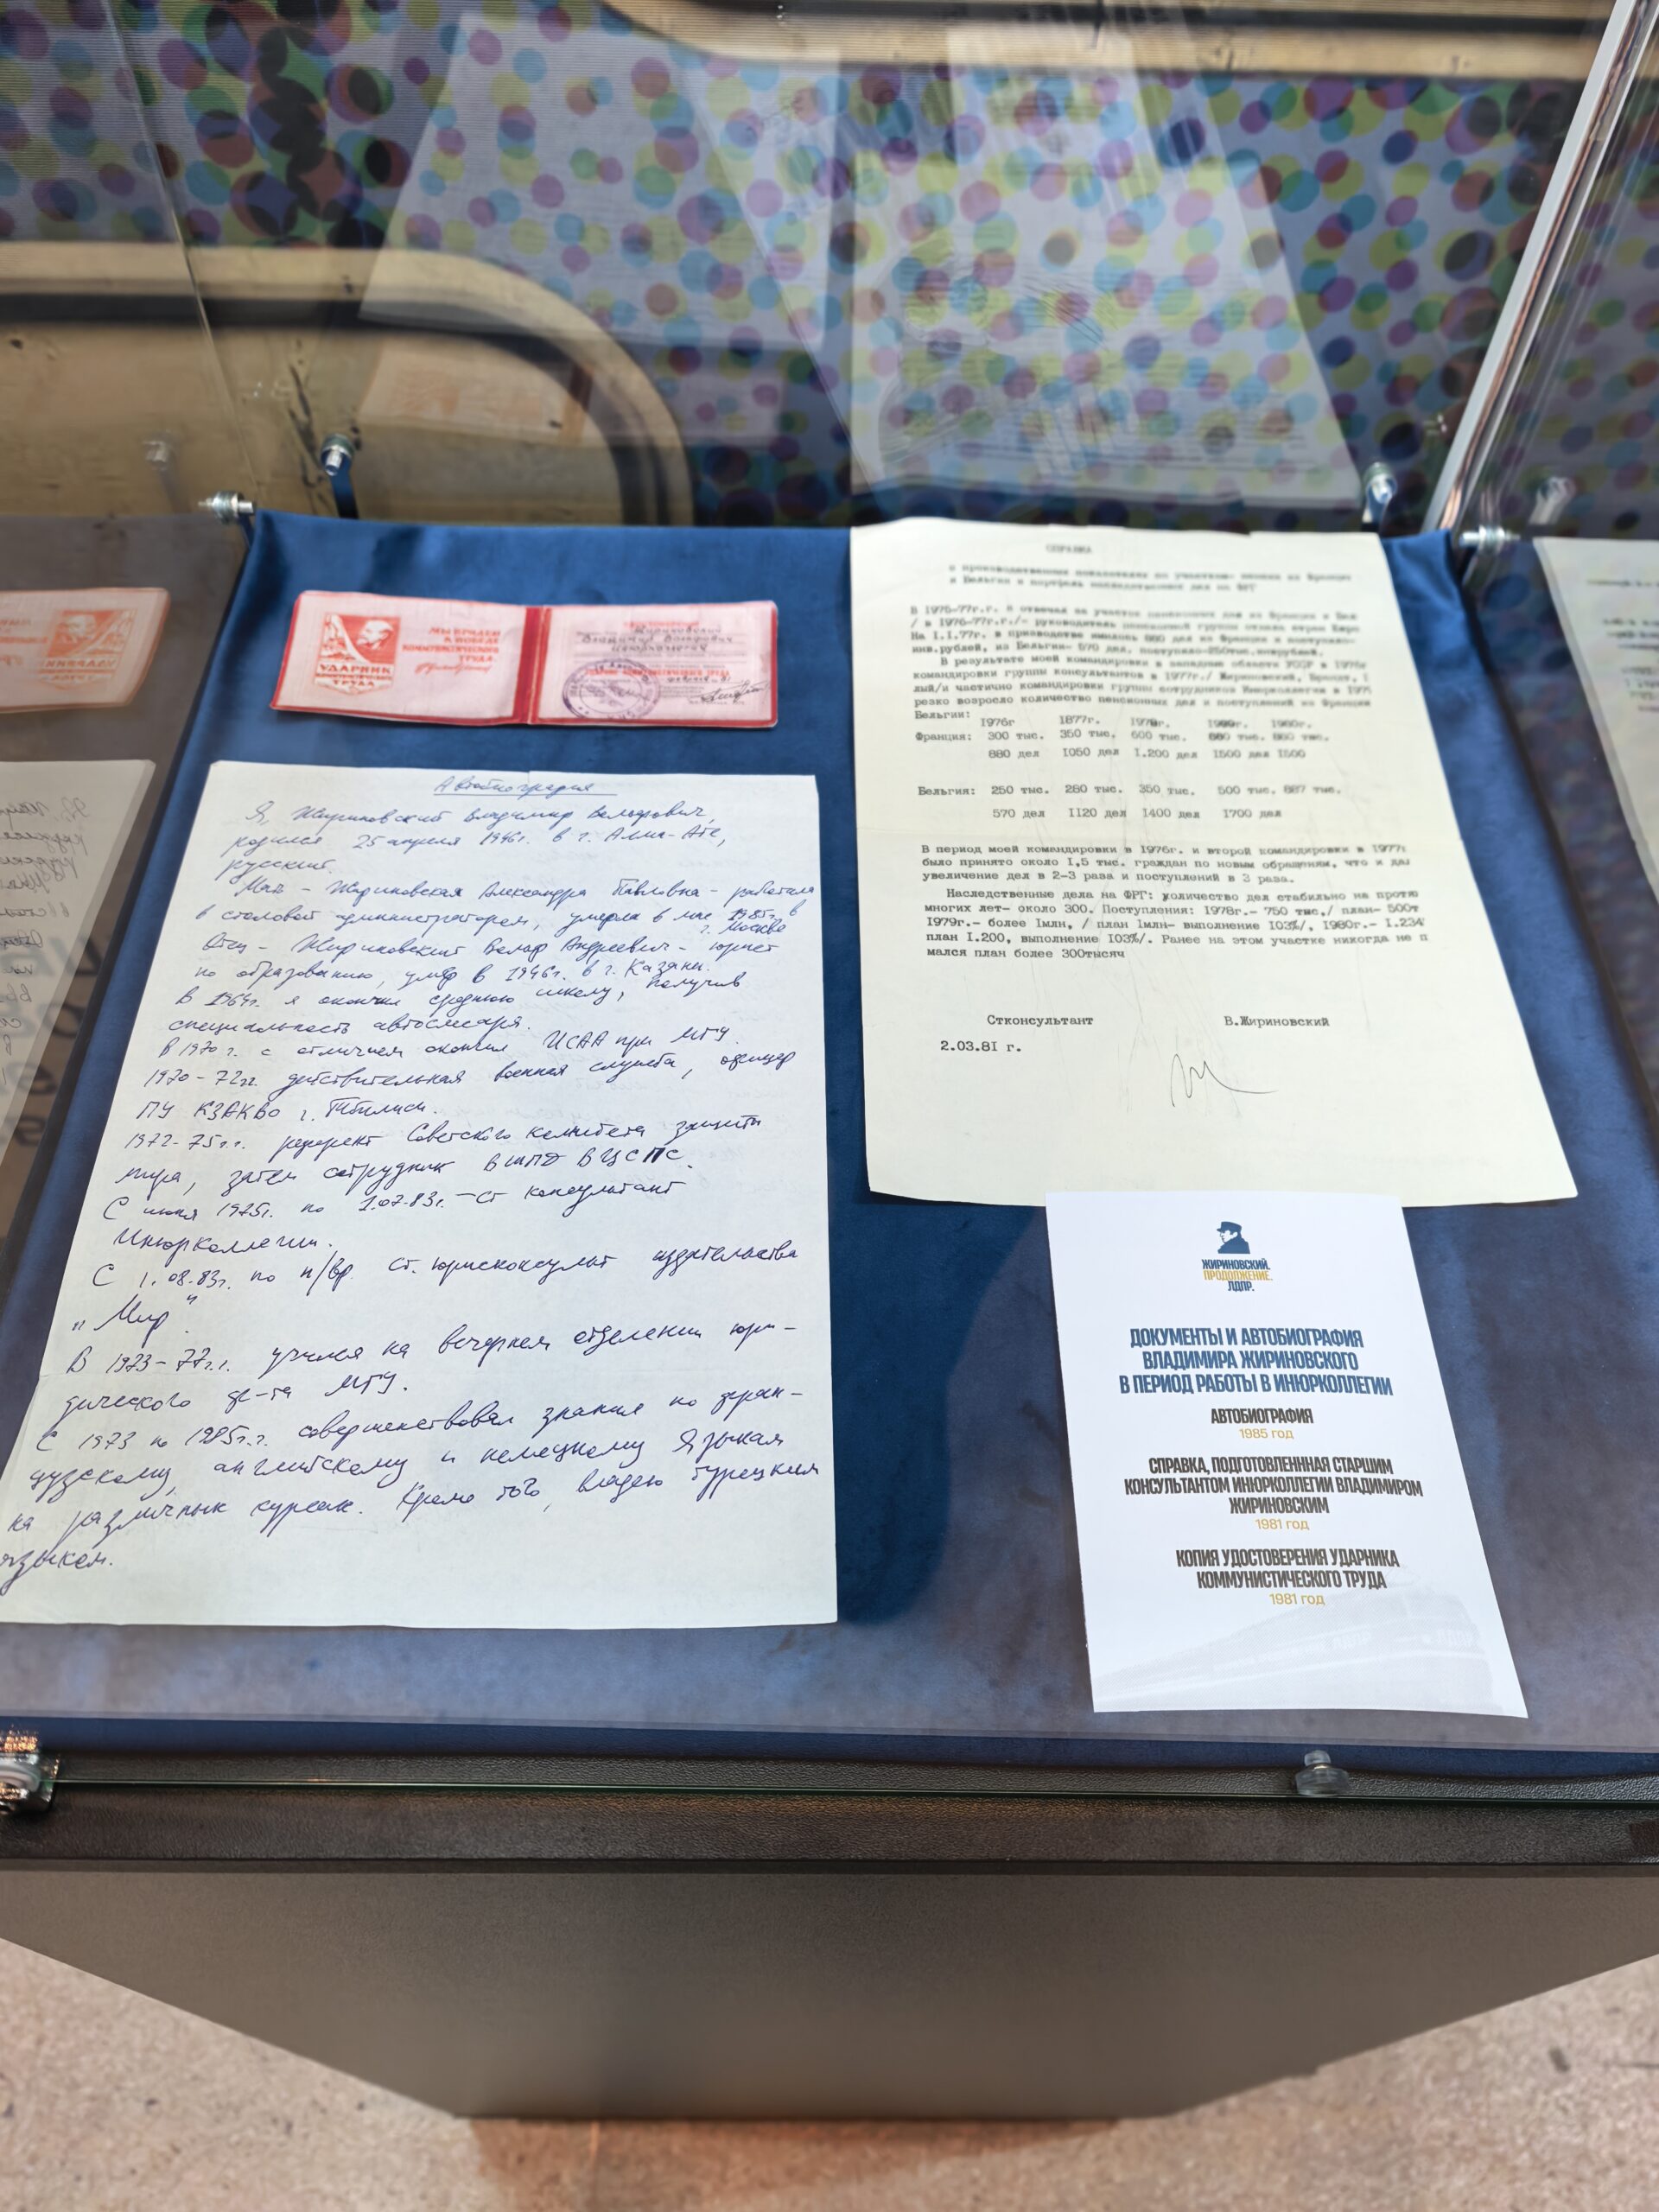 МЫ ПРИДЕМ
К ПОБЕДЕ
КОММУНИСТИЧЕСКОГО
ТРУДА
УДАРНИК
КОММУНИСТИЧЕСКОГО
ТРУДА
Жириновский
Владимир Вольфович
Автобиография
Я, Жириновский Владимир Вольфович,
родился 25 апреля 1946г. в г. Алма-Ате,
русский.
Мать - Жириновская Александра Павловна - работала
в столовой администратором, умерла в мае 1985г. в
г. Москве
Отец - Жириновский Вольф Андреевич - юрист
по образованию, умер в 1946г. в г. Казани.
В 1964г. я окончил среднюю школу, получив
специальность автослесаря.
В 1970 г. с отличием окончил ИСАА при МГУ.
1970-72гг. действительная военная служба, офицер
ПУ КЗАКВО г. Тбилиси.
1972-75г.г. референт Советского комитета защиты
мира, затем сотрудник ВШПД ВЦСПС.
С июня 1975г. по 1.07.83г. - ст консультант
Инюрколлегии.
С 1.08.83г. по н/вр. ст. юрисконсульт издательства
„Мир"
В 1973-77г.г. учился на вечернем отделении юри-
дического ф-та МГУ.
С 1973 по 1985г.г. совершенствовал знания по фран-
цузскому, английскому и немецкому языкам
на различных курсах. Кроме того, владею турецким
языком.
СПРАВКА
о производственных показателях по участкам- пенсии из Франции
и Бельгии и портфель наследственных дел по ФРГ
В 1975-77г.г. я отвечал за участок пенсионных дел из Франции и Бел
/ в 1976-77г.г./- руководитель пенсионной группы отдела стран Евро
На I.I.77г. в призводстве имелось 880 дел из Франции и поступило-
инв.рублей, из Бельгии- 570 дел. поступило-250тыс.инврублей.
В результате моей командировки в западные области УССР в 1976г
командировки группы консультантов в 1977г./ Жириновский,
лый/и частично командировки группы сотрудников Инюрколлегии в 197
резко возросло количество пенсионных дел и поступлений из Франции
Бельгии:
1976г 1877г. 1978г. 1980г.
Франция: 300 тыс. 350 тыс. 600 тыс. 860 тыс.
880 дел I050 дел I.200 дел I500 дел I500
Бельгия: 250 тыс. 280 тыс. 350 тыс. 500 тыс. 687 тыс.
570 дел II20 дел I400 дел I700 дел
В период моей командировки в 1976г. и второй командировки в 1977г
было принято около I,5 тыс. граждан по новым обращениям, что и дал
увеличение дел в 2-3 раза и поступлений в 3 раза.
Наследственные дела на ФРГ: количество дел стабильно на протя
многих лет- около 300. Поступления: 1978г.- 750 тыс./ план- 500т
I979г.- более Iмлн, / план Iмлн- выполнение I03%/, I980г.- I.234
план I.200, выполнение I03%/. Ранее на этом участке никогда не п
мался план более 300тысяч
Стконсультант В.Жириновский
2.03.8I г.
ЖИРИНОВСКИЙ.
ПРОДОЛЖЕНИЕ.
ЛДПР.
ДОКУМЕНТЫ И АВТОБИОГРАФИЯ
ВЛАДИМИРА ЖИРИНОВСКОГО
В ПЕРИОД РАБОТЫ В ИНЮРКОЛЛЕГИИ
АВТОБИОГРАФИЯ
1985 год
СПРАВКА, ПОДГОТОВЛЕННАЯ СТАРШИМ
КОНСУЛЬТАНТОМ ИНЮРКОЛЛЕГИИ ВЛАДИМИРОМ
ЖИРИНОВСКИМ
1981 год
КОПИЯ УДОСТОВЕРЕНИЯ УДАРНИКА
КОММУНИСТИЧЕСКОГО ТРУДА
1981 год